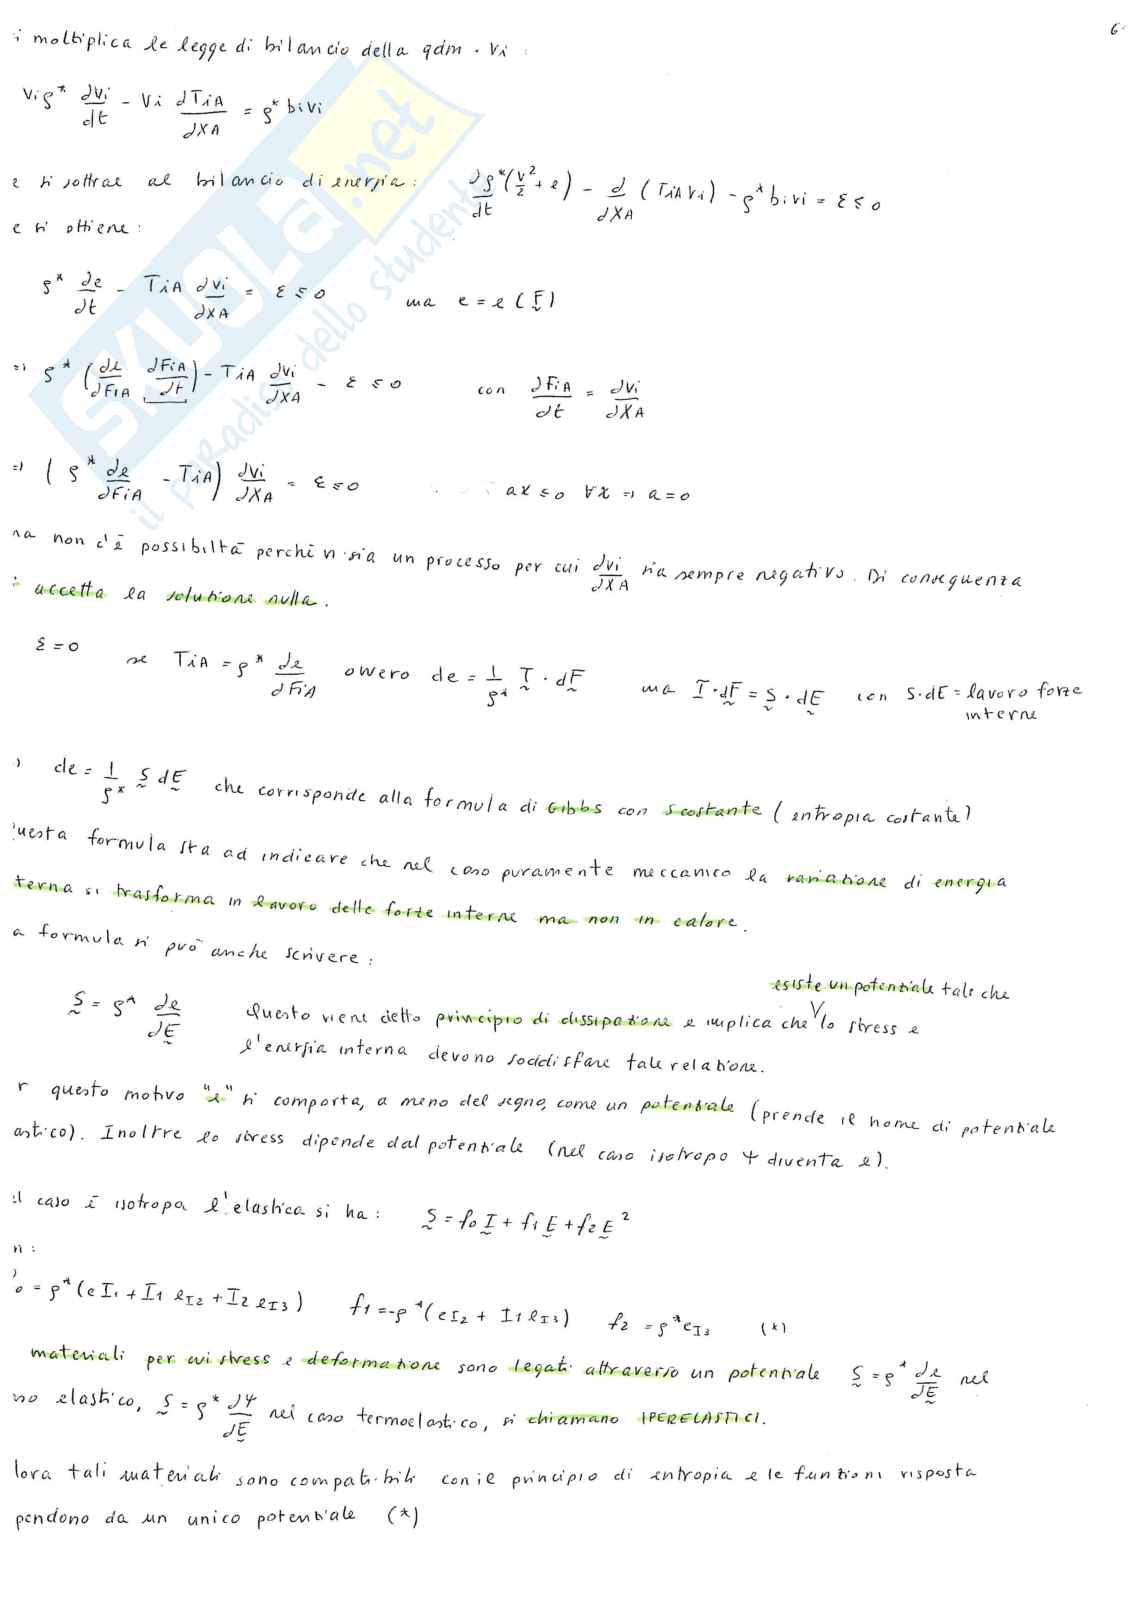 6
i moltiplica le legge di bilancio della qdm · vi :
vi ρ* ∂vi/∂t - vi ∂TiA/∂XA = ρ* bi vi
e si sottrae al bilancio di energia: ∂ρ*/∂t (v²/2 + e) - ∂/∂XA (TiA vi) - ρ* bi vi = Σ ≤ 0
e si ottiene:
ρ* ∂e/∂t - TiA ∂vi/∂XA = Σ ≤ 0 ma e = e (F)
=> ρ* (∂e/∂FiA ∂FiA/∂t) - TiA ∂vi/∂XA - Σ ≤ 0 con ∂FiA/∂t = ∂vi/∂XA
=> (ρ* ∂e/∂FiA - TiA) ∂vi/∂XA = Σ ≤ 0 ax ≤ 0 ∀x => a = 0
ma non c'è possibiltà perchè vi sia un processo per cui ∂vi/∂XA sia sempre negativo. Di conseguenza
i accetta la soluzione nulla.
Σ = 0 se TiA = ρ* ∂e/∂FiA ovvero de = 1/ρ* T · dF ma T · dF = S · dE con S · dE = lavoro forze interne
) de = 1/ρ* S dE che corrisponde alla formula di Gibbs con S costante (entropia costante)
uesta formula sta ad indicare che nel caso puramente meccanico la variazione di energia
terna si trasforma in lavoro delle forze interne ma non in calore.
a formula si può anche scrivere :
esiste un potenziale tale che
S = ρ* ∂e/∂E Questo viene detto principio di dissipazione e implica che V lo stress e
l'energia interna devono soddisfare tale relazione.
r questo motivo "e" si comporta, a meno del segno, come un potenziale (prende il nome di potenziale
astico). Inoltre lo stress dipende dal potenziale (nel caso isotropo ψ diventa e).
il caso è isotropa l'elastica si ha : S = f0 I + f1 E + f2 E²
n :
0 = ρ* (e I1 + I1 e I2 + I2 e I3) f1 = -ρ* (e I2 + I1 e I3) f2 = ρ* e I3 (*)
materiali per cui stress e deformazione sono legati attraverso un potenziale S = ρ* ∂e/∂E nel
so elastico, S = ρ* ∂ψ/∂E nel caso termoelastico, si chiamano IPERELASTICI.
lora tali materiali sono compatibili con il principio di entropia e le funzioni risposta
pendono da un unico potenziale (*)
SKUOLA.net
il paradiso dello studente